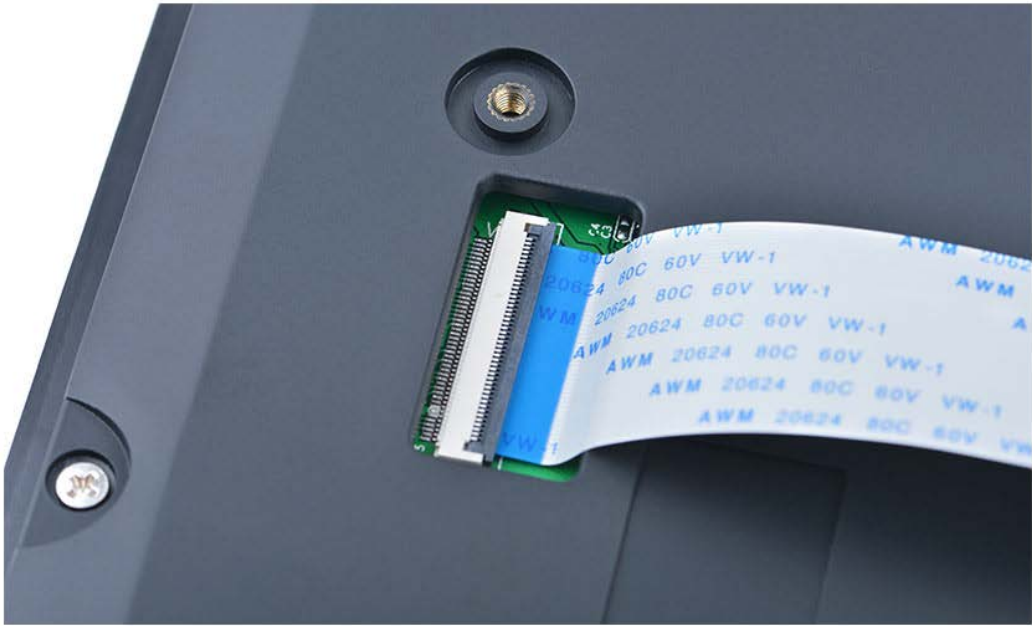 80C 60V VW-1
AWM 2062
20624 80C 60V VW-1
AWM
AWM 20624 80C 60V VW-1
A
AWM 20624 80C 60V VW-1
AWM 20624 80C 60V VW-1
AWM 20624 80C 60V VW-1
AWM 20624 80C 60V VW
VW-1